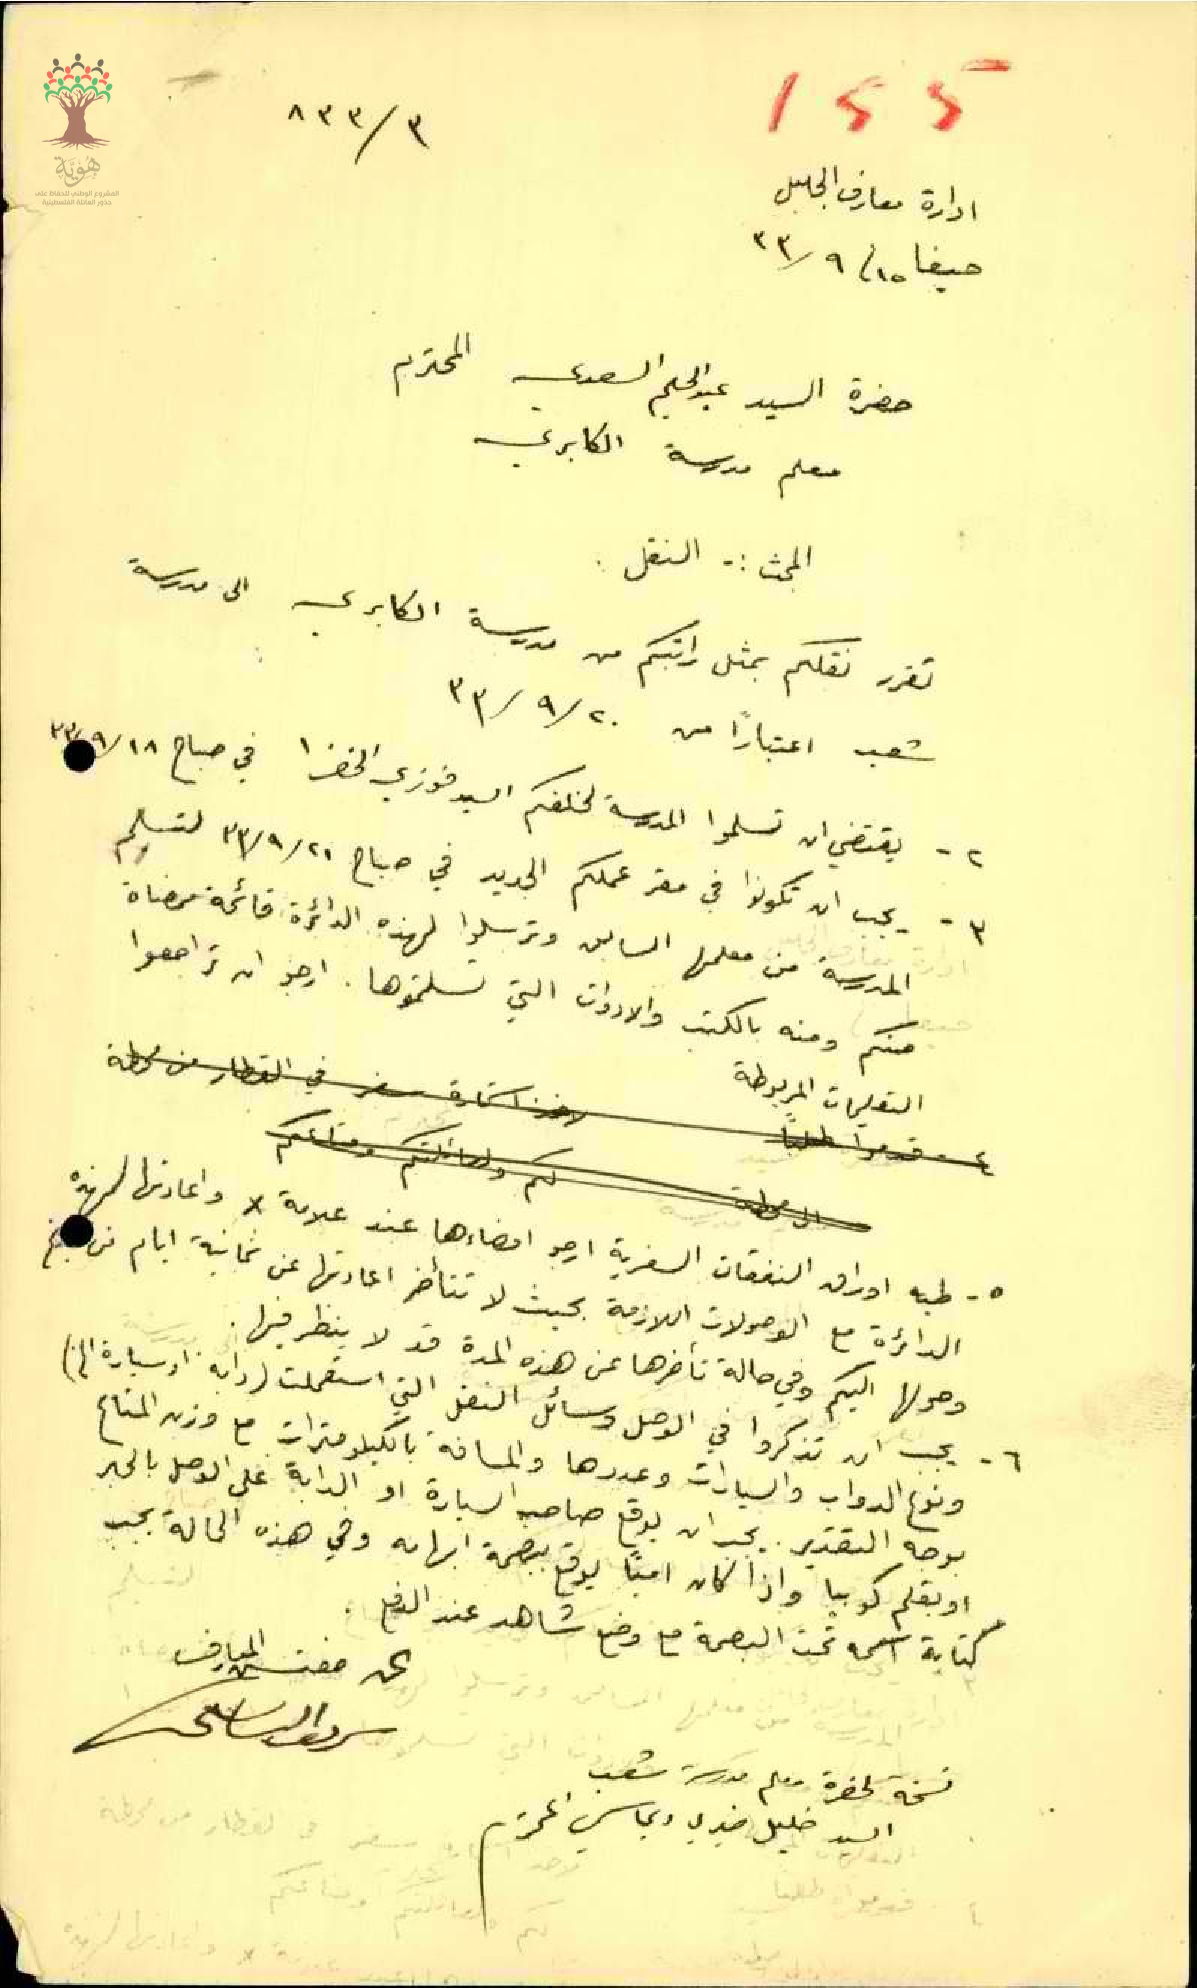 ١٤٤
٨٣٣/٣
هُوِيَّة
المشروع الوطني للحفاظ على
جذور العائلة الفلسطينية
ادارة معارف الجليل
حيفا ١٥/ ٩/ ٣٣
حضرة السيد عبد الحليم السعدي المحترم
معلم مدرسة الكابري
البحث :- النقل .
تقرر نقلكم بمثل راتبكم من مدرسة الكابري الى مدرسة
شعب اعتباراً من ٢٠ /٩/ ٣٣
٢ - يقتضي ان تسلموا المدرسة لخلفكم السيد فوزي الخضرا في صباح ١٨ /٩/ ٣٣
٣ - يجب ان تكونوا في مقر عملكم الجديد في صباح ٢١ /٩/ ٣٣ لتسلم
المدرسة من معلمها السابق وترسلوا لهذه الدائرة قائمة ممضاة
منكم ومنه بالكتب والادوات التي تسلمتموها . ارجو ان تراجعوا
التعليمات المربوطة
٤ - قدموا طلباً لاخذ استمارة سفر في القطار من محطة
الى محطة لكم ولعائلتكم ومتاعكم
٥ - طيه اوراق النفقات السفرية ارجو امضاءها عند علامة x واعادتها لهذه
الدائرة مع الوصولات اللازمة بحيث لا تتأخر اعادتها عن ثمانية ايام من
وصولها اليكم وفي حالة تأخرها عن هذه المدة قد لا ينظر فيها .
٦ - يجب ان تذكروا في الوصل وسائل النقل التي استعملت (دابة او سيارة الخ)
ونوع الدواب والسيارات وعددها والمسافة بالكيلومترات مع وزن المتاع
بوجه التقدير . يجب ان يوقع صاحب السيارة او الدابة على الوصل بالحبر
او بقلم كوبيا واذا كان امياً يوقع ببصمة ابهامه وفي هذه الحالة يجب
كتابة اسمه تحت البصمة مع وضع شاهد عند الدفع .
عن مفتش المعارف
نسخة لحضرة معلم مدرسة شعب
السيد خليل المحترم